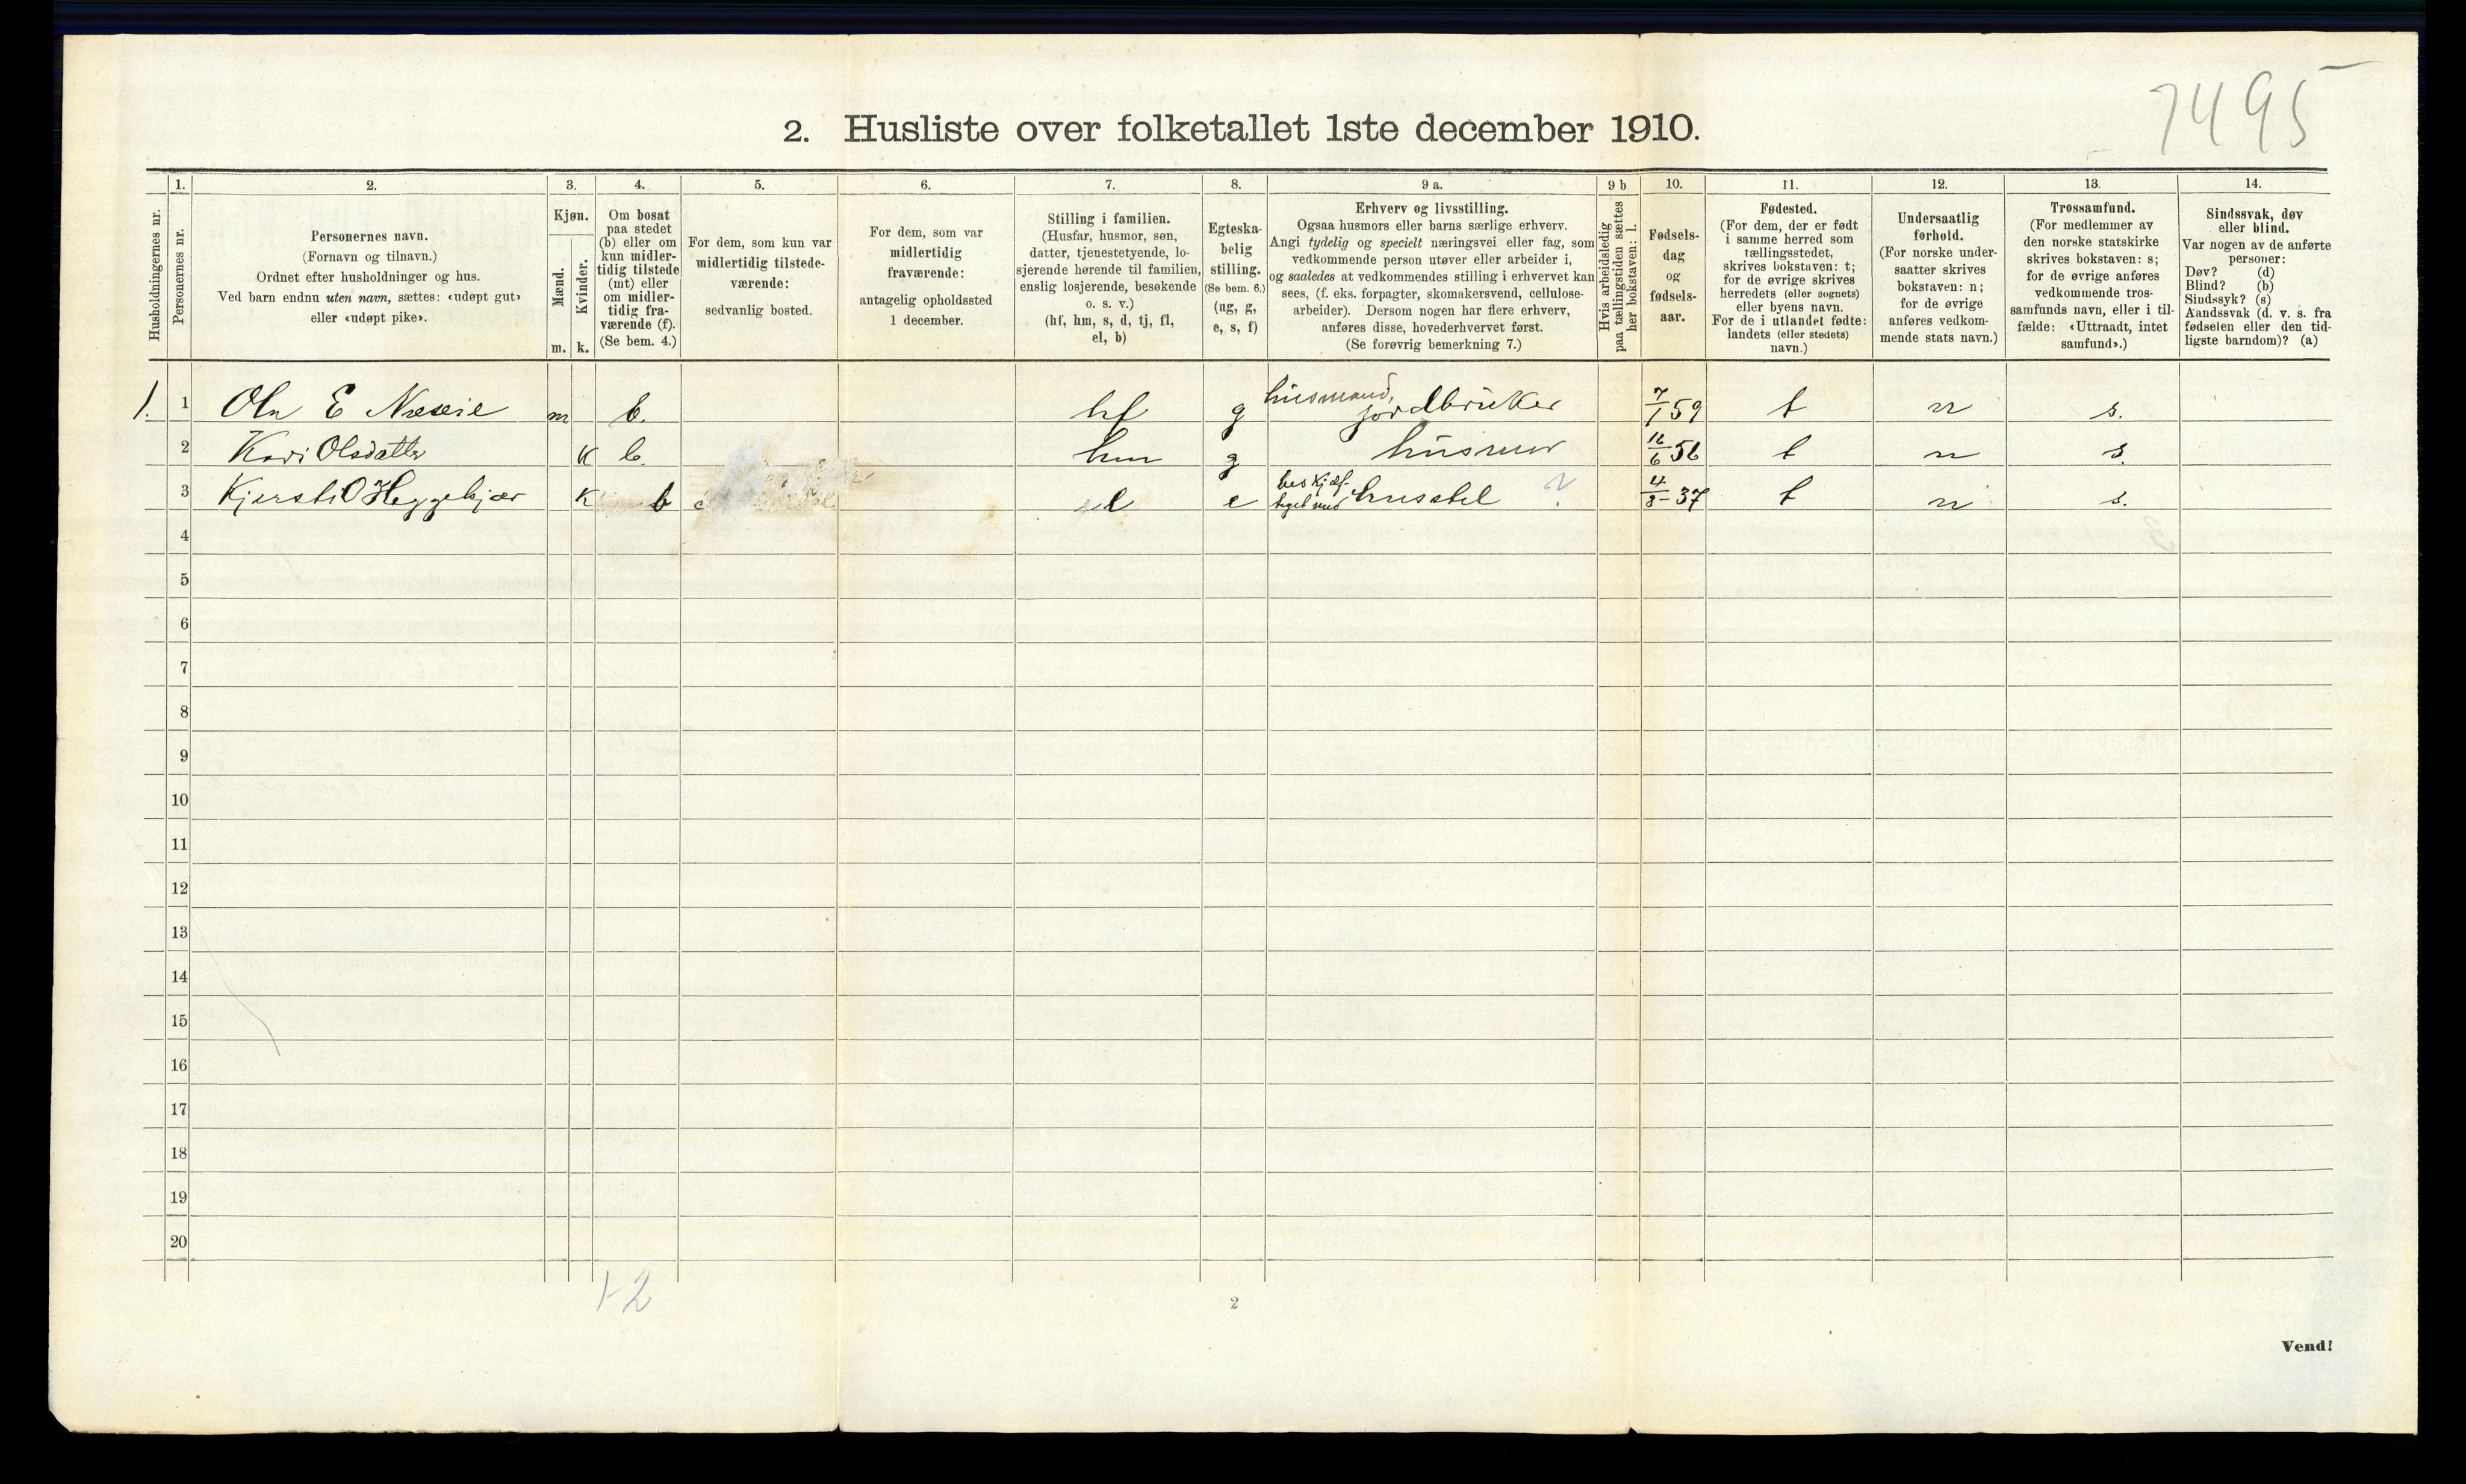 7495
2. Husliste over folketallet 1ste december 1910.
Husholdningernes nr.
1.
Personernes nr.
2.
Personernes navn.
(Fornavn og tilnavn.)
Ordnet efter husholdninger og hus.
Ved barn endnu uten navn, sættes: «udøpt gut»
eller «udøpt pike».
3.
Kjøn.
Mænd.
Kvinder.
m. k.
4.
Om bosat
paa stedet
(b) eller om
kun midler-
tidig tilstede
(mt) eller
om midler-
tidig fra-
værende (f).
(Se bem. 4.)
5.
For dem, som kun var
midlertidig tilstede-
værende:
sedvanlig bosted.
6.
For dem, som var
midlertidig
fraværende:
antagelig opholdssted
1 december.
7.
Stilling i familien.
(Husfar, husmor, søn,
datter, tjenestetyende, lo-
sjerende hørende til familien,
enslig losjerende, besøkende
o. s. v.)
(hf, hm, s, d, tj, fl,
el, b)
8.
Egteska-
belig
stilling.
(Se bem. 6.)
(ug, g,
e, s, f)
9 a.
Erhverv og livsstilling.
Ogsaa husmors eller barns særlige erhverv.
Angi tydelig og specielt næringsvei eller fag, som
vedkommende person utøver eller arbeider i,
og saaledes at vedkommendes stilling i erhvervet kan
sees, (f. eks. forpagter, skomakersvend, cellulose-
arbeider). Dersom nogen har flere erhverv,
anføres disse, hovederhvervet først.
(Se forøvrig bemerkning 7.)
9 b
Hvis arbeidsledig
paa tællingstiden sættes
her bokstaven: l.
10.
Fødsels-
dag
og
fødsels-
aar.
11.
Fødested.
(For dem, der er født
i samme herred som
tællingsstedet,
skrives bokstaven: t;
for de øvrige skrives
herredets (eller sognets)
eller byens navn.
For de i utlandet fødte:
landets (eller stedets)
navn.)
12.
Undersaatlig
forhold.
(For norske under-
saatter skrives
bokstaven: n;
for de øvrige
anføres vedkom-
mende stats navn.)
13.
Trossamfund.
(For medlemmer av
den norske statskirke
skrives bokstaven: s;
for de øvrige anføres
vedkommende tros-
samfunds navn, eller i til-
fælde: «Uttraadt, intet
samfund».)
14.
Sindssvak, døv
eller blind.
Var nogen av de anførte
personer:
Døv? (d)
Blind? (b)
Sindssyk? (s)
Aandssvak (d. v. s. fra
fødselen eller den tid-
ligste barndom)? (a)
1. 1 Ola E m b. hf g husmand, jordbruker 7/1 59 t n s.
2 Kari Olsdatter k b. hm g husmor 16/6 56 t n s.
3 Kjersti O Heggekjær k b el e beskjæf-
tiget med husstel ? 4/8-37 t n s.
4
5
6
7
8
9
10
11
12
13
14
15
16
17
18
19
20
1-2
2
Vend!